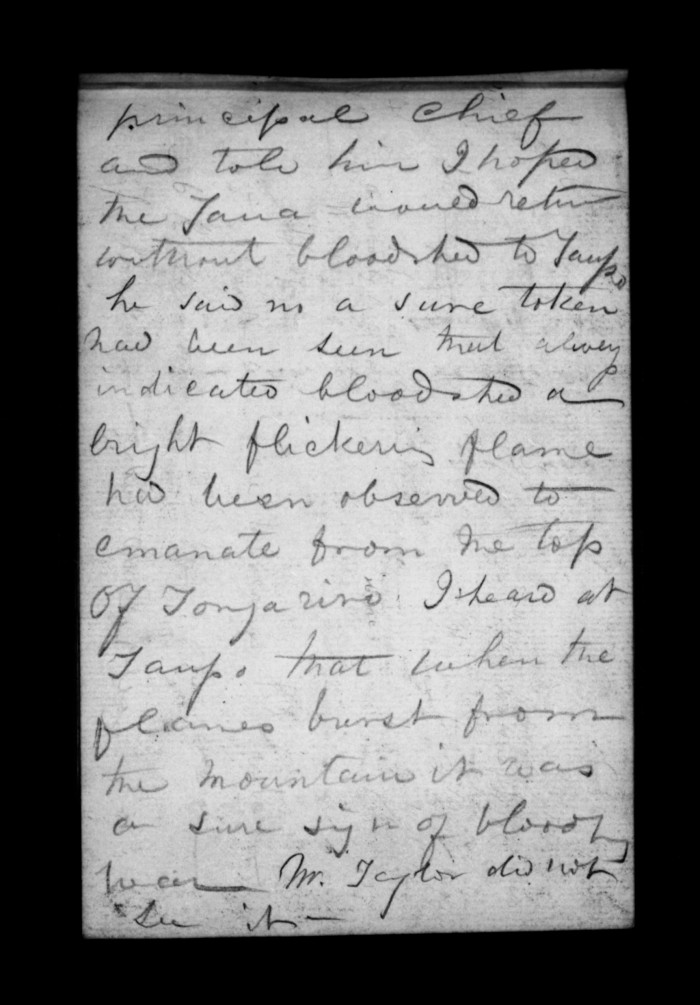 principal chief
and told him I hoped
the Taua would return
without bloodshed to Taupo
he said no a sure token
had been seen that always
indicated bloodshed a
bright flickering flame
had been observed to
emanate from the top
of Tongariro. I heard at
Taupo that when the
flames burst from
the mountain it was
a sure sign of bloody
war Mr. Taylor did not
see it -